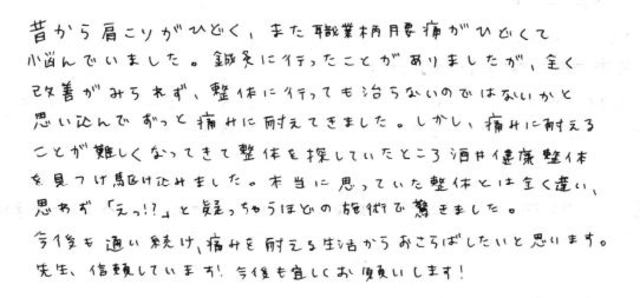 昔から肩こりがひどく、また職業柄腰痛がひどくて
悩んでいました。鍼灸に行ったことがありましたが、全く
改善がみられず、整体に行っても治らないのではないかと
思い込んでずっと痛みに耐えてきました。しかし、痛みに耐える
ことが難しくなってきて整体を探していたところ酒井健康整体
を見つけ駆け込みました。本当に思っていた整体とは全く違い、
思わず「えっ!?」と疑っちゃうほどの施術で驚きました。
今後も通い続け、痛みを耐える生活からおさらばしたいと思います。
先生、信頼しています!今後も宜しくお願いします!